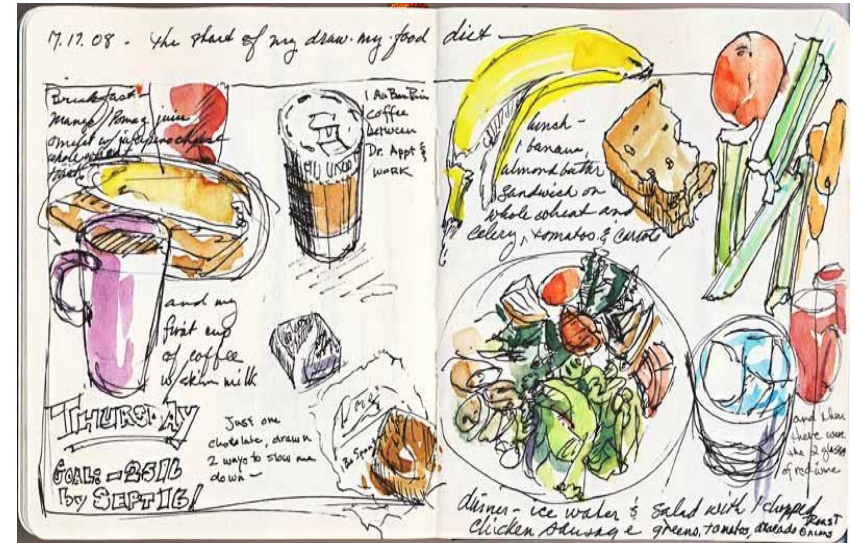 7.17.08 - The start of my draw-my-food diet -
Breakfast -
Mango/Pomeg. juice
omelet w/ jalapeno cheese
whole wheat
toast
1 Au Bon Pain
coffee
between
Dr. Appt &
work
and my
first cup
of coffee
w/ skim milk
THURSDAY
GOAL: -25 lb
by SEPT 16!
Just one
chocolate, drawn
2 ways to slow me
down -
lunch -
1 banana,
almond butter
sandwich on
whole wheat and
celery, tomatos & carrots
and then
there were
the 2 glasses
of red wine
dinner - ice water & salad with 1 chopped
chicken sausage greens, tomatos, avocado